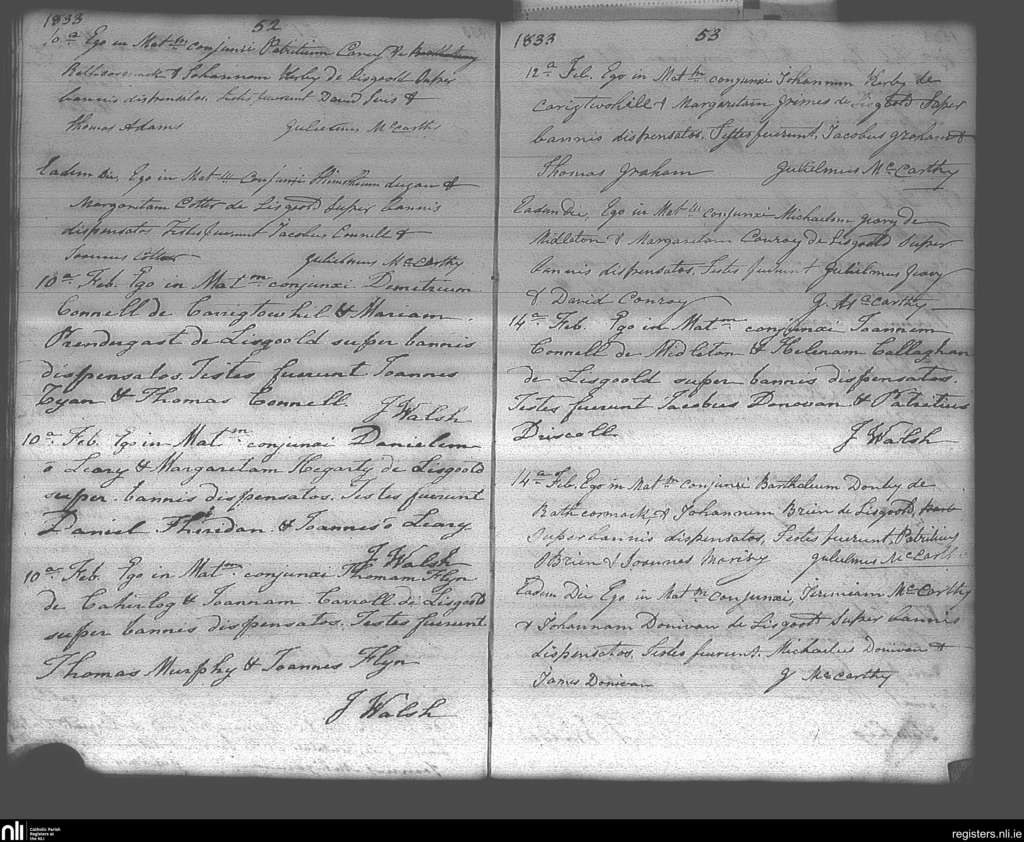 1833 52
10.a Ego in Mat.m conjunxi Patritium Carey de
Rathcormack & Johannam Kirby de Lisgoold super
bannis dispensatos. Testes fuerunt David &
Thomas Adams Gulielmus McCarthy
Eadem Die, Ego in Mat.m Conjunxi dugan &
Margaretam Cotter de Lisgoold Super bannis
dispensatos Testes, fuerunt Jacobus Connell &
Joannes Cotter Gulielmus McCarthy
10a. Feb. Ego in Mat.m conjunxi Demetrium
Connell de Carrigtowhil & Mariam
Prendergast de Lisgoold super bannis
dispensatos. Testes fuerunt Joannes
Ryan & Thomas Connell J Walsh
10a. Feb. Ego in Mat.m conjunxi Danielem
o Leary & Margaretam Hegarty de Lisgoold
super bannis dispensatos. Testes fuerunt
Daniel & Joannes o Leary.
J Walsh
10a. Feb. Ego in Mat.m conjunxi Thomam Flyn
de Cahirlog & Joannam Carroll de Lisgoold
super bannis dispensatos. Testes fuerunt
Thomas Murphy & Joannes Flyn
J Walsh
1833 53
12.a Feb. Ego in Mat.m conjunxi Johannem Kirby de
Carigtwohill & Margaretam de Lisgoold Super
bannis dispensatos. Testes fuerunt. Jacobus Graham &
Thomas Graham Gulielmus McCarthy
Eadem Die, Ego in Mat.m Conjunxi Michaelem Geary de
Midleton & Margaretam Conroy de Lisgoold Super
bannis dispensatos. Testes fuerunt Gulielmus Geary
& David Conroy G. McCarthy
14a. Feb. Ego in Mat.m conjunxi Joannem
Connell de Midleton & Helenam Callaghan
de Lisgoold super bannis dispensatos.
Testes fuerunt Jacobus Donovan & Patritius
Driscoll. J Walsh
14.a Feb. Ego in Mat.m Conjunxi de
Rathcormack, & Johannam Brien de Lisgoold,
Super bannis dispensatos, Testes fuerunt, Patritius
OBrien & Joannes Gulielmus McCarthy
Eadem Die Ego in Mat.m Conjunxi, Jeremiam McCarthy
& Johannam Donivan de Lisgoold Super bannis
dispensatos. Testes fuerunt. Michaelus Donivan &
James Donivan G McCarthy
nli Catholic Parish
Registers at
the NLI
registers.nli.ie